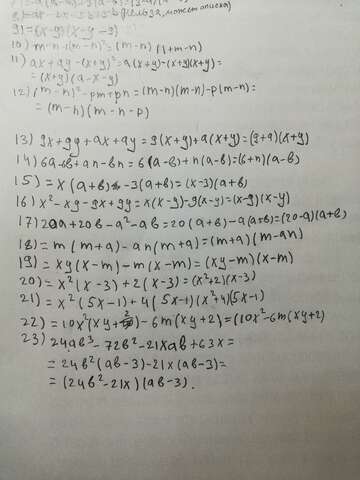 9) =6x-9y(x-y-9)
10) m-n-(m-n)²=(m-n)(1+m-n)
11) ax+ay-(x+y)²=a(x+y)-(x+y)(x+y)=
=(x+y)(a-x-y)
12) (m-n)²-pm+pn=(m-n)(m-n)-p(m-n)=
=(m-n)(m-n-p)
13) 9x+9y+ax+ay=9(x+y)+a(x+y)=(9+a)(x+y)
14) 6a-6b+an-bn=6(a-b)+n(a-b)=(6+n)(a-b)
15) =x(a+b)-3(a+b)=(x-3)(a+b)
16) x²-xy-9x+9y=x(x-y)-9(x-y)=(x-9)(x-y)
17) 20a+20b-a²-ab=20(a+b)-a(a+b)=(20-a)(a+b)
18) =m(m+a)-an(m+a)=(m+a)(m-an)
19) =xy(x-m)-m(x-m)=(xy-m)(x-m)
20) =x²(x-3)+2(x-3)=(x²+2)(x-3)
21) =x²(5x-1)+4(5x-1)(x²+4)(5x-1)
22) =10x²(xy+2)-6m(xy+2)=(10x²-6m(xy+2)
23) 24ab³-72b²-21xab+63x=
=24b²(ab-3)-21x(ab-3)=
=(24b²-21x)(ab-3).